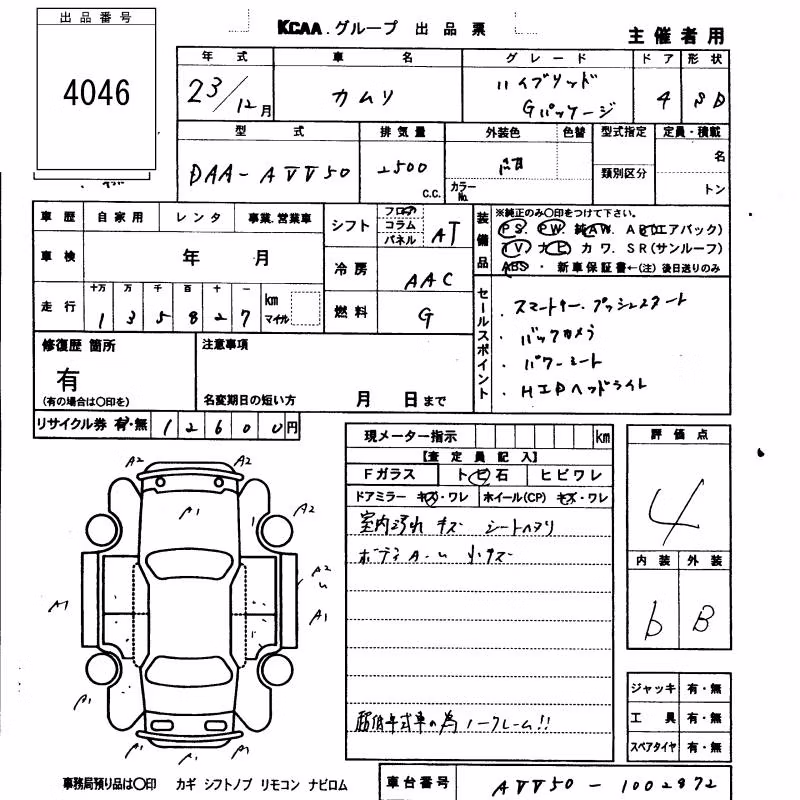 出品番号
4046
KCAA.グループ 出品票
主催者用
年式 車名 グレード ドア 形状
23/12月 カムリ ハイブリッド Gパッケージ 4 SD
型式 排気量 外装色 色替 型式指定 定員・積載
DAA-AVV50 2500 C.C. カラーNo. 類別区分 名 トン
車歴 自家用 レンタ 事業.営業車
シフト フロア コラム パネル AT
車検 年 月
冷房 AAC
走行 十万 万 千 百 十 一 km マイル
1 3 5 8 2 7
燃料 G
装備品
※純正のみ〇印をつけて下さい。
PS. PW. 純AW. AB(エアバック)
TV ナビ カワ. SR(サンルーフ)
ABS ・ 新車保証書←(注) 後日送りのみ
セールスポイント
・スマートキー・プッシュスタート
・バックカメラ
・パワーシート
・HIDヘッドライト
修復歴 箇所
有
(有の場合は〇印を)
注意事項
名変期日の短い方 月 日まで
リサイクル券 有・無 12600円
現メーター指示 km
【査定員記入】
Fガラス トビ石 ヒビワレ
ドアミラー キズ・ワレ ホイール(CP) キズ・ワレ
室内汚れ キズ シートヘタリ
ボディA-U小キズ
低年式車の為ノークレーム!!
評価点
4
内装 外装
b B
A2 A2
A1 A1 A2
A2
U
A1 A1
A1 A1
A1 A1
ジャッキ 有・無
工具 有・無
スペアタイヤ 有・無
事務局預り品は〇印 カギ シフトノブ リモコン ナビロム
車台番号 AVV50-1002972